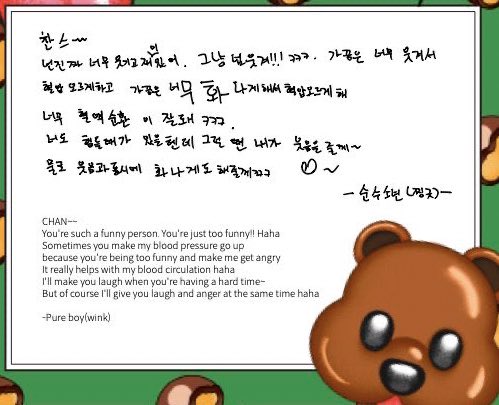 찬스~
넌진짜 너무 웃기고 재밌어. 그냥 넌웃겨!!! ㅋㅋㅋ. 가끔은 너무 웃겨서
혈압 오르게하고 가끔은 너무 화 나게해서 혈압오르게 해
너무 혈액순환 이 잘돼 ㅋㅋㅋ.
너도 힘들때가 있을텐데 그럴 땐 내가 웃음을 줄께~
물론 웃음과동시에 화나게도 해줄게ㅋㅋㅋ ~
- 순수소년 (찡긋) -
CHAN~~
You're such a funny person. You're just too funny!! Haha
Sometimes you make my blood pressure go up
because you're being too funny and make me get angry
It really helps with my blood circulation haha
I'll make you laugh when you're having a hard time~
But of course I'll give you laugh and anger at the same time haha
-Pure boy(wink)